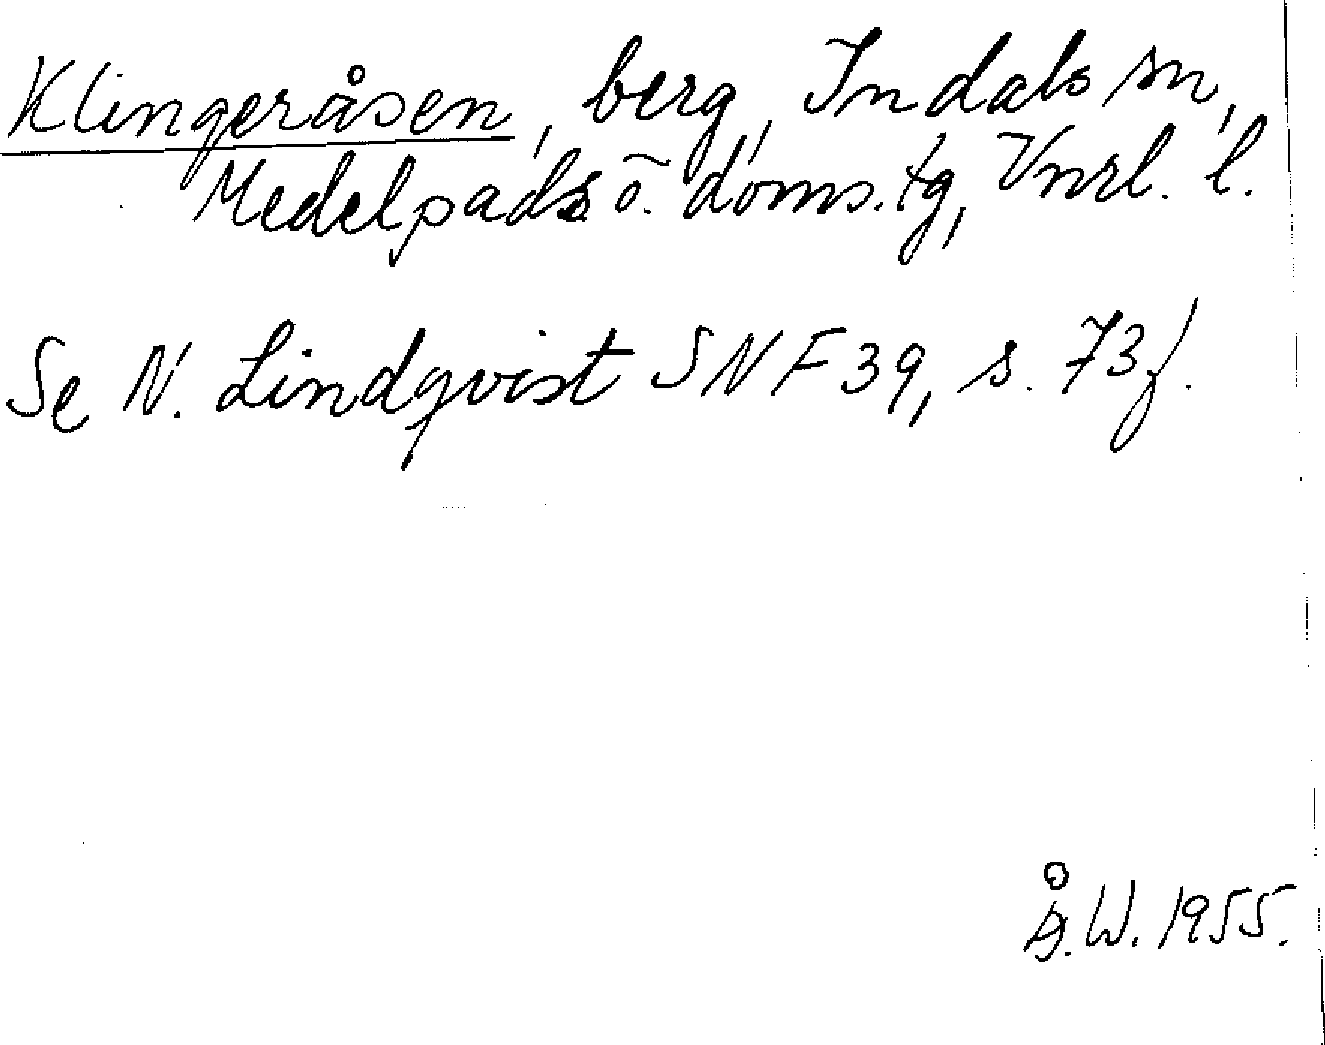 Klingeråsen, berg, Indals sn,
Medelpads ö. doms. tg, Vnrl. l.
Se N. Lindqvist SNF 39, s. 73 f.
Å.W. 1955.